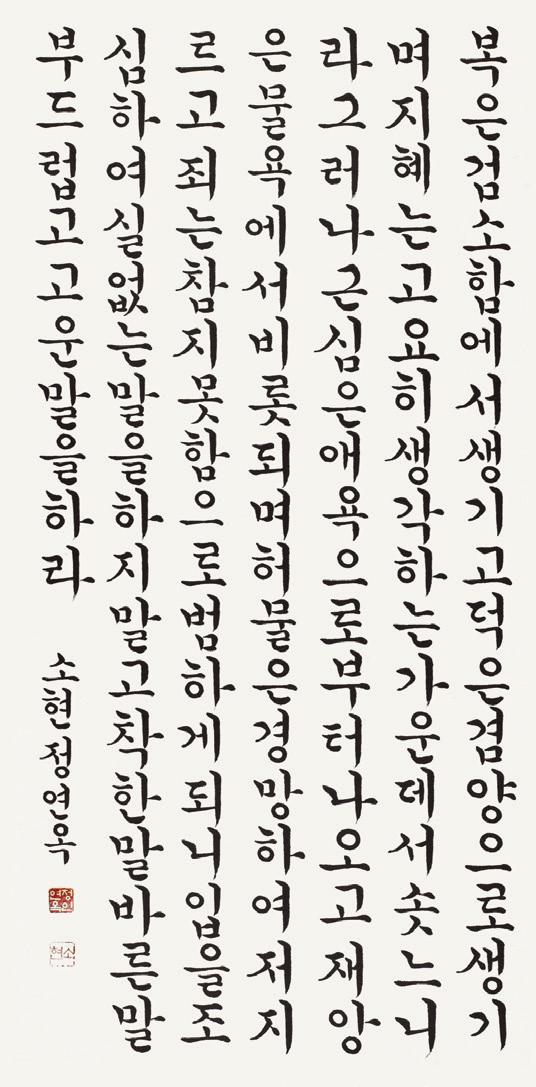 복은검소함에서생기고덕은겸양으로생기
며지혜는고요히생각하는가운데서솟느니
라그러나근심은애욕으로부터나오고재앙
은물욕에서비롯되며허물은경망하여저지
르고죄는참지못함으로범하게되니입을조
심하여실없는말을하지말고착한말바른말
부드럽고고운말을하라
소현정연옥
소현